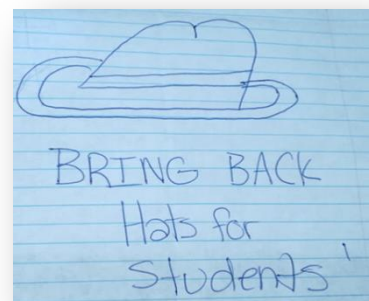 BRING BACK
Hats for
Students'